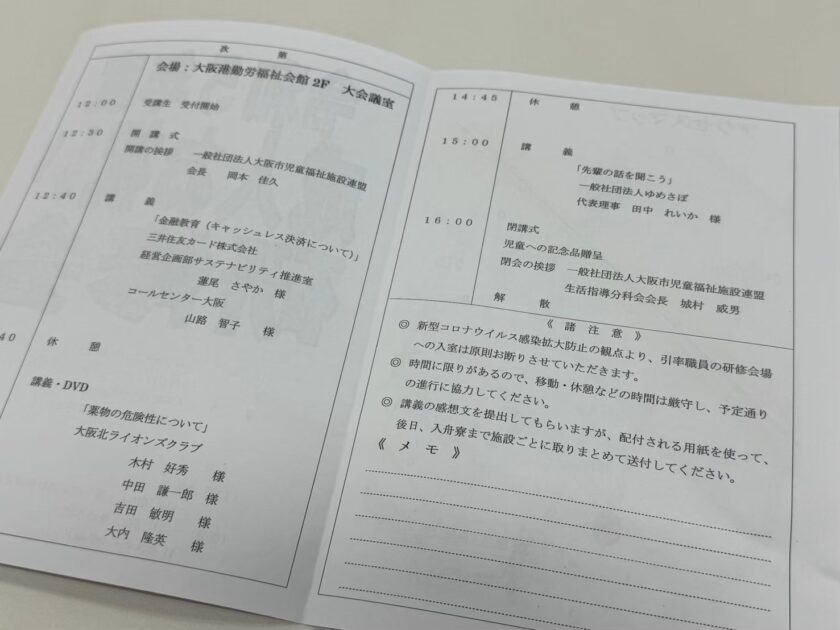 次　第
会場：大阪港勤労福祉会館 2F　大会議室
12:00　受講生　受付開始
12:30　開　講　式
開講の挨拶　一般社団法人大阪市児童福祉施設連盟
会長　岡本　佳久
12:40　講　義
「金融教育（キャッシュレス決済について）」
三井住友カード株式会社
経営企画部サステナビリティ推進室
蓮尾　さやか　様
コールセンター大阪
山路　智子　様
40　休　憩
講義・DVD
「薬物の危険性について」
大阪北ライオンズクラブ
木村　好秀　様
中田　謙一郎　様
吉田　敏明　様
大内　隆英　様
14:45　休　憩
15:00　講　義
「先輩の話を聞こう」
一般社団法人ゆめさぽ
代表理事　田中　れいか　様
16:00　閉講式
児童への記念品贈呈
閉会の挨拶　一般社団法人大阪市児童福祉施設連盟
生活指導分科会会長　城村　威男
解　散
《　諸　注　意　》
◎ 新型コロナウイルス感染拡大防止の観点より、引率職員の研修会場
への入室は原則お断りさせていただきます。
◎ 時間に限りがあるので、移動・休憩などの時間は厳守し、予定通り
の進行に協力してください。
◎ 講義の感想文を提出してもらいますが、配付される用紙を使って、
後日、入舟寮まで施設ごとに取りまとめて送付してください。
《　メ　モ　》